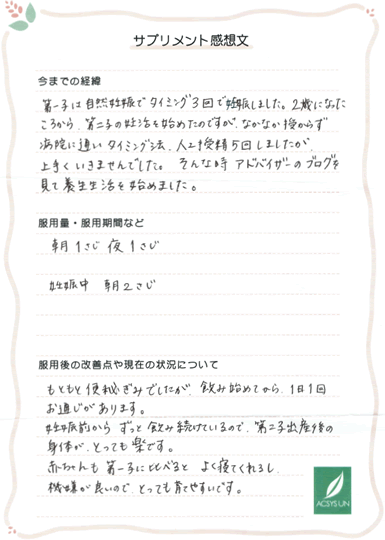 サプリメント感想文
今までの経緯
第一子は自然妊娠でタイミング3回で妊娠しました。2歳になった
ころから、第二子の妊活を始めたのですが、なかなか授からず
病院に通いタイミング法、人工授精5回しましたが、
上手くいきませんでした。そんな時アドバイザーのブログを
見て養生生活を始めました。
服用量・服用期間など
朝1さじ 夜1さじ
妊娠中 朝2さじ
服用後の改善点や現在の状況について
もともと便秘ぎみでしたが、飲み始めてから、1日1回
お通じがあります。
妊娠前からずっと飲み続けているので、第二子出産後の
身体が、とっても楽です。
赤ちゃんも第一子に比べるとよく寝てくれるし、
機嫌が良いので、とっても育てやすいです。
ACSYS UN